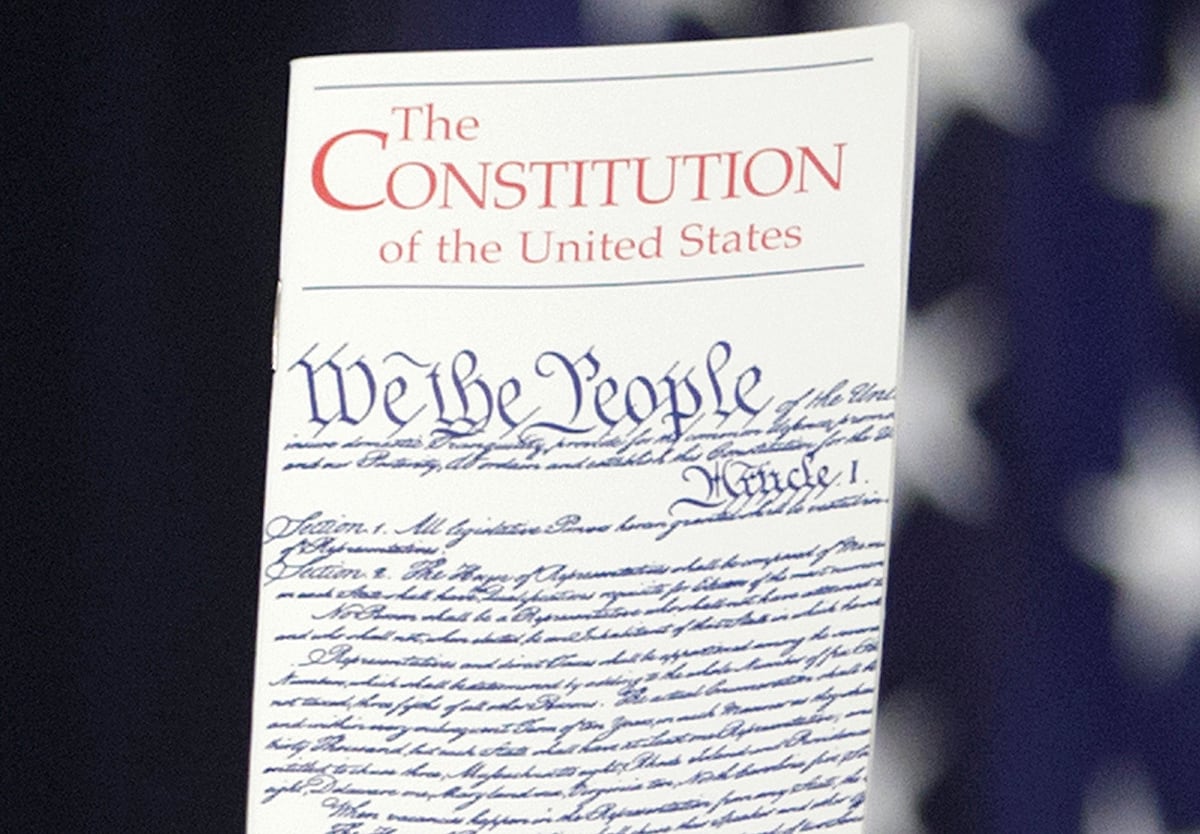 The
CONSTITUTION
of the United States
We the People of the Uni
insure domestic Tranquility, provide for the common defence, promo
and our Posterity, do ordain and establish this Constitution for the U
Article. I.
Section. 1. All legislative Powers herein granted shall be vested in
of Representatives.
Section. 2. The House of Representatives shall be composed of Mem
in each State shall have Qualifications requisite for Electors of the most numerous
No Person shall be a Representative who shall not have attained t
and who shall not, when elected, be an Inhabitant of that State in which he
Representatives and direct Taxes shall be apportioned among the several
Numbers, which shall be determined by adding to the whole Number of free
not taxed, three fifths of all other Persons. The actual Enumeration shall
and within every subsequent Term of ten Years, in such Manner as they shall
thirty Thousand, but each State shall have at Least one Representative; and
entitled to chuse three, Massachusetts eight, Rhode Island and Providence
eight, Delaware one, Maryland six, Virginia ten, North Carolina five,
When vacancies happen in the Representation from any State, the
The shall chuse their Speaker and other